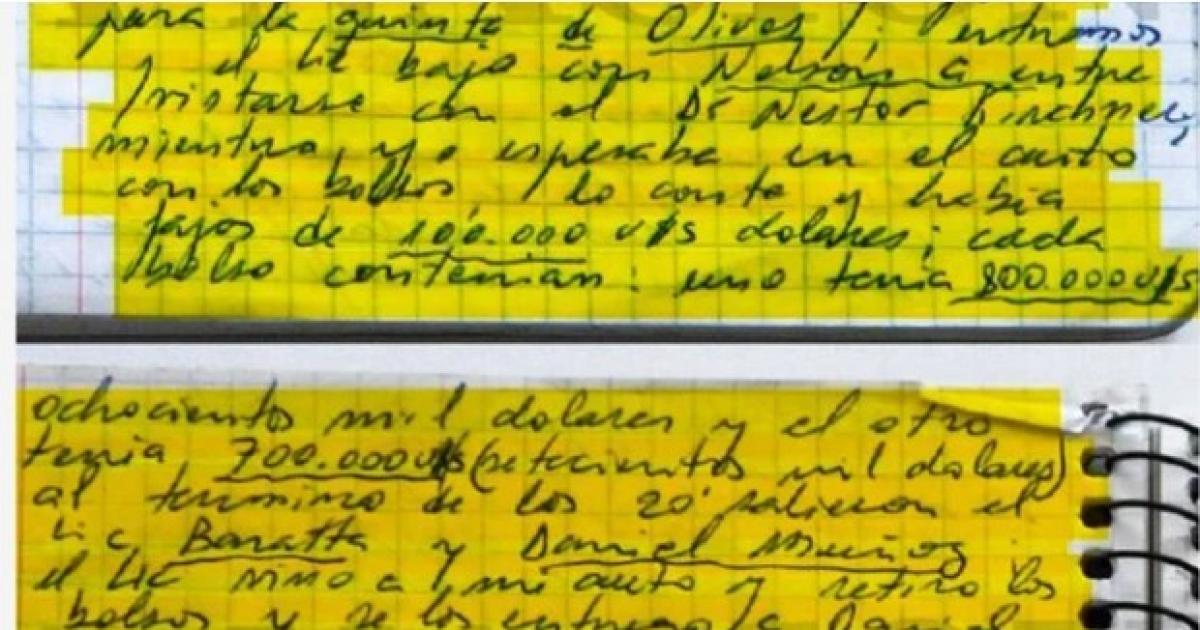 para la quinta de Olivos /; entramos
y el Lic bajo con Nelson G entre
/vistarse con el Dr Nestor Kirchner,
mientra, yo esperaba en el auto
con los bolsos, / lo conte y habia
fajos de 100.000 U$S dolares; cada
bolso contenian: uno tenia 800.000 U$S
ochocientos mil dolares y el otro
tenia 700.000 U$S (setecientos mil dolares)
al termino de los 20' salieron el
Lic Baratta y Daniel Muñoz
el Lic vino a / mi auto y retiro los
bolsos y se los entrego /a Daniel